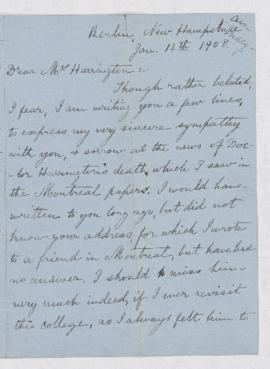 Berlin, New Hampshire
Jan. 12th 1908.
Dear Mrs Harrington:
Though rather belated,
I fear, I am writing you a few lines,
to express my very sincere sympathy
with you, & sorrow at the news of Doc-
tor Harrington's death, which I saw in
the Montreal papers. I would have
written to you long ago, but did not
know your address for which I wrote
to a friend in Montreal, but have had
no answer. I should miss him
very much indeed, if I ever revisit
this college, as I always felt him to